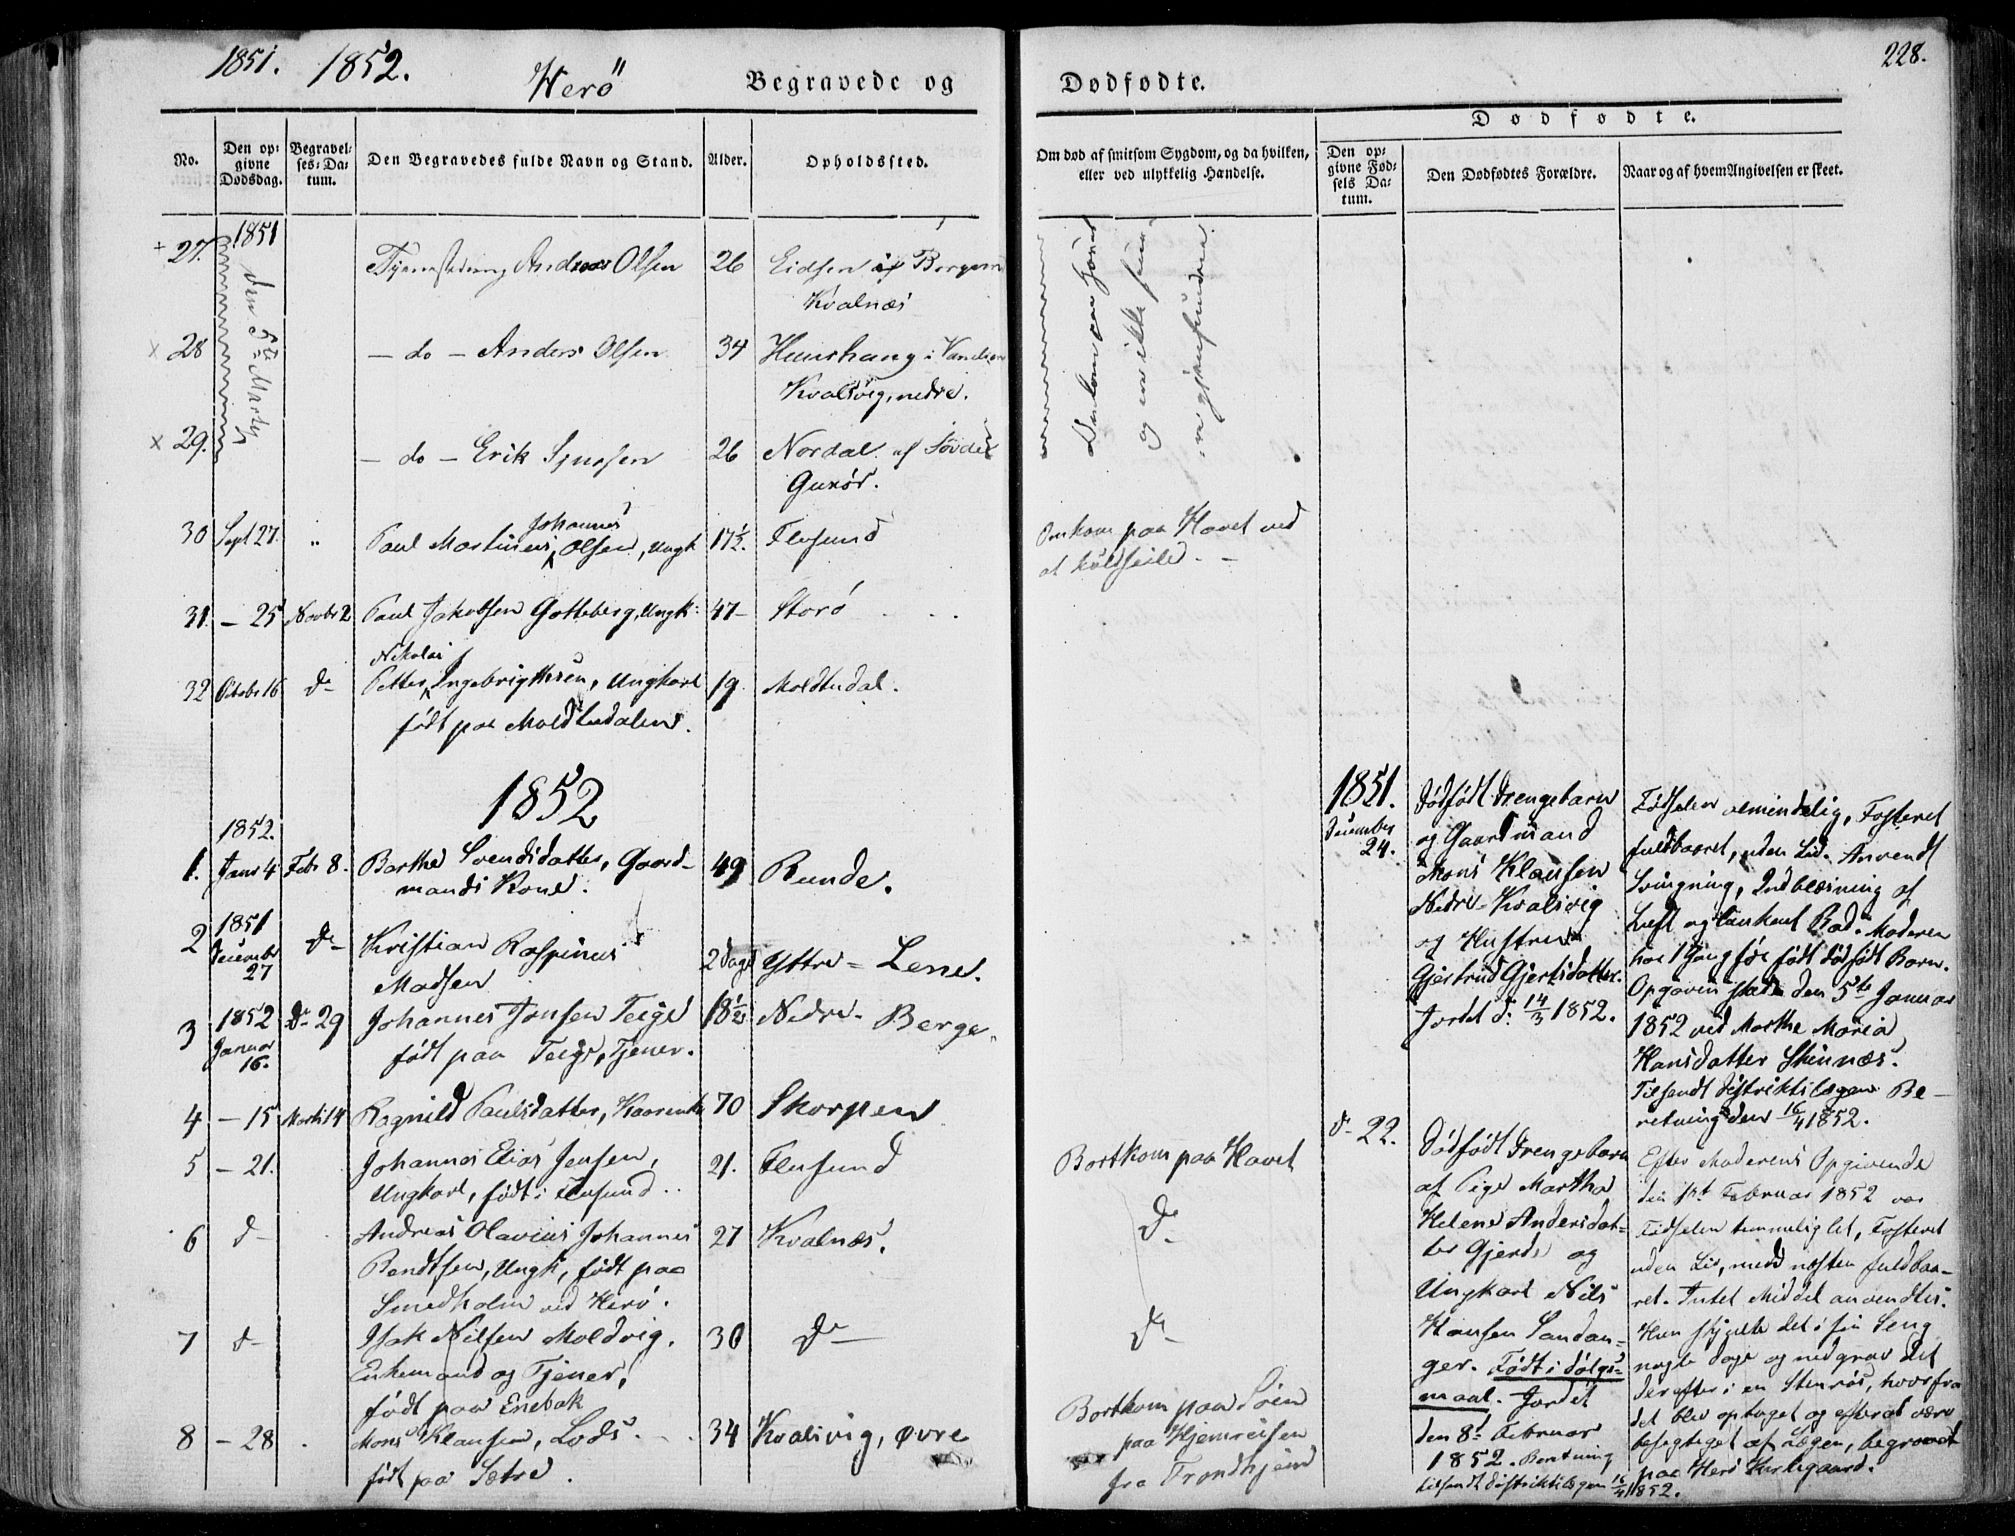 1851. 1852. Herö Begravede og
Dødfødte. 228.
No.
Den opgivne Dødsdag.
Begravelses-Datum.
Den Begravedes fulde Navn og Stand.
Alder.
Opholdssted.
Om død af smitsom Sygdom, og da hvilken,
eller ved ulykkelig Hændelse.
Dødfødte.
Den opgivne Fødsels Datum.
Den Dødfødtes Forældre.
Naar og af hvem Angivelsen er skeet.
1851
den 5te Marts
+ 27. Andreas Olsen 26 Eidsen af Bergen
Kvalnæs
x 28 - do - Anders Olsen 34 i Vandsen
Kvalsvig, nedre.
x 29. - do - Erik 26 Nordal af Søvde
Gurør.
Omkom paa
og ere ikke
igjenfundne
Johannes
30 Sept 27. " Paul Martinus Olsen, Ungk 17½. Flusund
Omkom paa Havet ved
at kuldseile. -
31. - 25 Novbr 2 Paul Jakobsen Gotteberg, Ungk: 47- Storö
Nikolai
32 Octobr 16 d- Petter Ingebrigtsen, Ungkarl 19. Moldtudal.
født paa Moldtudalen.
1852
1852.
1. Janr 4 Febr 8. Barthe Svendsdatter, Gaard- 49 Runde.
mands Kone.
1851
2 December 27 d- Kristian Raspinus 2 Dage Yttre-Lene.
Madsen
1852
3 Januar 16. d- 29 Johannes Jonsen Teige 18½ Nedre-Berge.
født paa Teige, Tjener.
4 - 15 Marts 14 Ragnild Paulsdatter, 70 Skorpen
5 - 21. Johannes Elias Jensen, 21. Flusund
Ungkarl, født i Flusund..
Bortkom paa Havet
6 d- Andreas Olavius Johannes 27 Kvalnæs.
Rendtsen, Ungk, født paa
Smedholm ved Herö.
d-
7 d- Isak Nilsen Moldvig. 30 d-
Enkemand og Tjener,
født paa Enebak
d-
8 - 28 . Mons Klausen, Lods 34 Kvalsvig, øvre
født paa Sætre.
Bortkom paa Søen
paa Hjemreisen
fra Trondhjem
1851.
December 24.
Dødfødt Drengebarn
og Gaardmand
Mons Klausen
Nedre-Kvalsvig
og Hustru
Gjertrud Gjertsdatter.
Jordet d: 14/3 1852.
Fødselen almindelig, Fosteret
fuldbaaret, uden Liv. Anvendt
Svingning, Indblæsning af
Luft og lunkent Bad. Moderen
har 1 Gang før født dødfødt Barn.
Opgaven skede den 5te Januar
1852 ved Marthe Maria
Hansdatter Skinnæs.
Tilsendt Distriktslægen Be-
retning den 16/4 1852.
d- 22.
Dødfødt Drengebarn
af Pige Martha
Helene Andersdat-
ter Gjerde og
Ungkarl Nils
Hansen Sandan-
ger. Født i Dølgs-
maal. Jordet
den 8de Februar
1852. Beretning
tilsendt Distriktslægen 16/4 1852.
Efter Moderens Opgivende
den 1st Februar 1852 var
Fødselen temmelig let, Fosteret
uden Liv, med næsten fuldbaa-
ret. Intet Middel anvendtes.
Hun skjulte det i sin Seng
nogle Dage og nedgrov det
derefter i en Stenrøs, hvorfra
det blev optaget og efter at være
besigtiget af Lægen, begravet
paa Herö Kirkegaard.